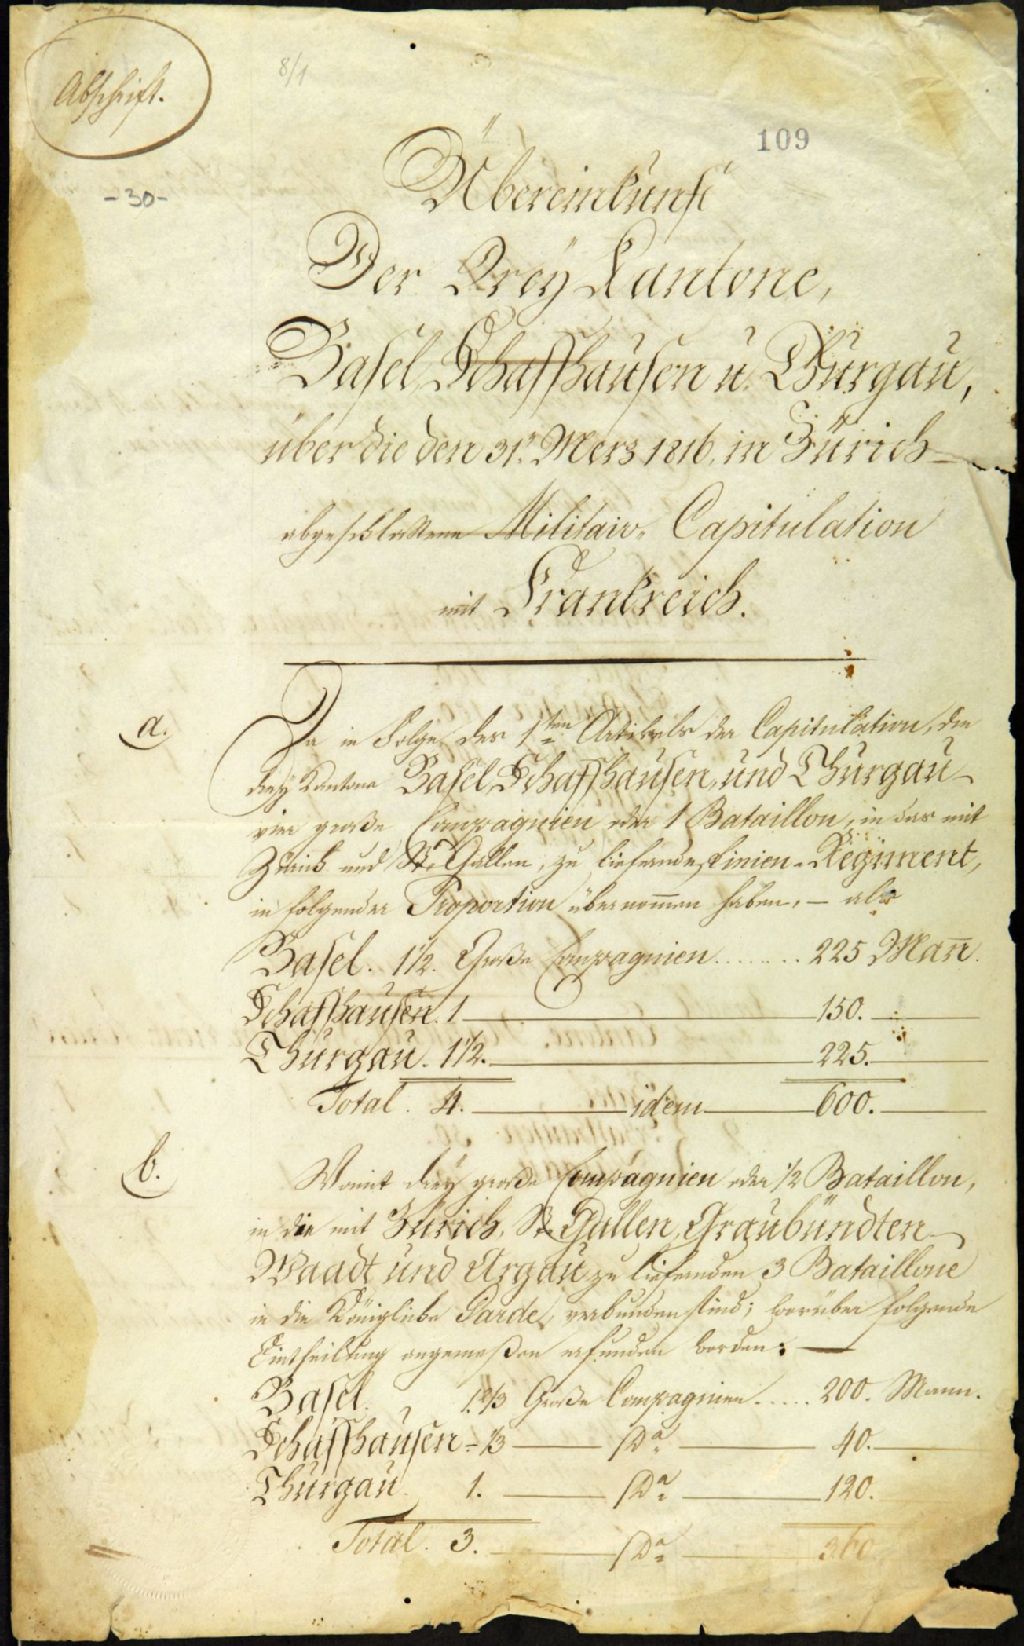 Abschrift.
8/1
109
- 30 -
Übereinkunft
Der Drey Kantone,
Basel Schaffhausen u. Thurgau,
über die den 31.t Merz 1816. in Zürich
abgeschlossene Militair-Capitulation
mit Frankreich.
a. Da in Folge des 1ten Artikels der Capitulation, die
drey Kantone Basel, Schaffhausen, und Thurgau
vier große Compagnien oder 1 Bataillon, in das mit
Zürich und St. Gallen, zu liefernde Linien-Regiment,
in folgender Proportion übernommen haben, — als
Basel. 1 1/2. Große Compagnien ........ 225 Man̄.
Schaffhausen. 1 ——— 150. ———
Thurgau. 1 1/2. ——— 225. ———
Total. 4. ——— idem ——— 600. ———
b. Womit drey große Compagnien oder 1/2 Bataillon,
in die mit Zürich, St. Gallen, Graubündten
Waadt und Argau zu liefernden 3 Bataillone
in die Königliche Garde, verbunden sind; worüber folgende
Eintheilung angemeßen erfunden worden: —
Basel. 1 2/3 Große Compagnien ..... 200. Mann.
Schaffhausen - 1/3 ——— Do ——— 40. ———
Thurgau 1. ——— Do ——— 120.
Total. 3. ——— Do ——— 360